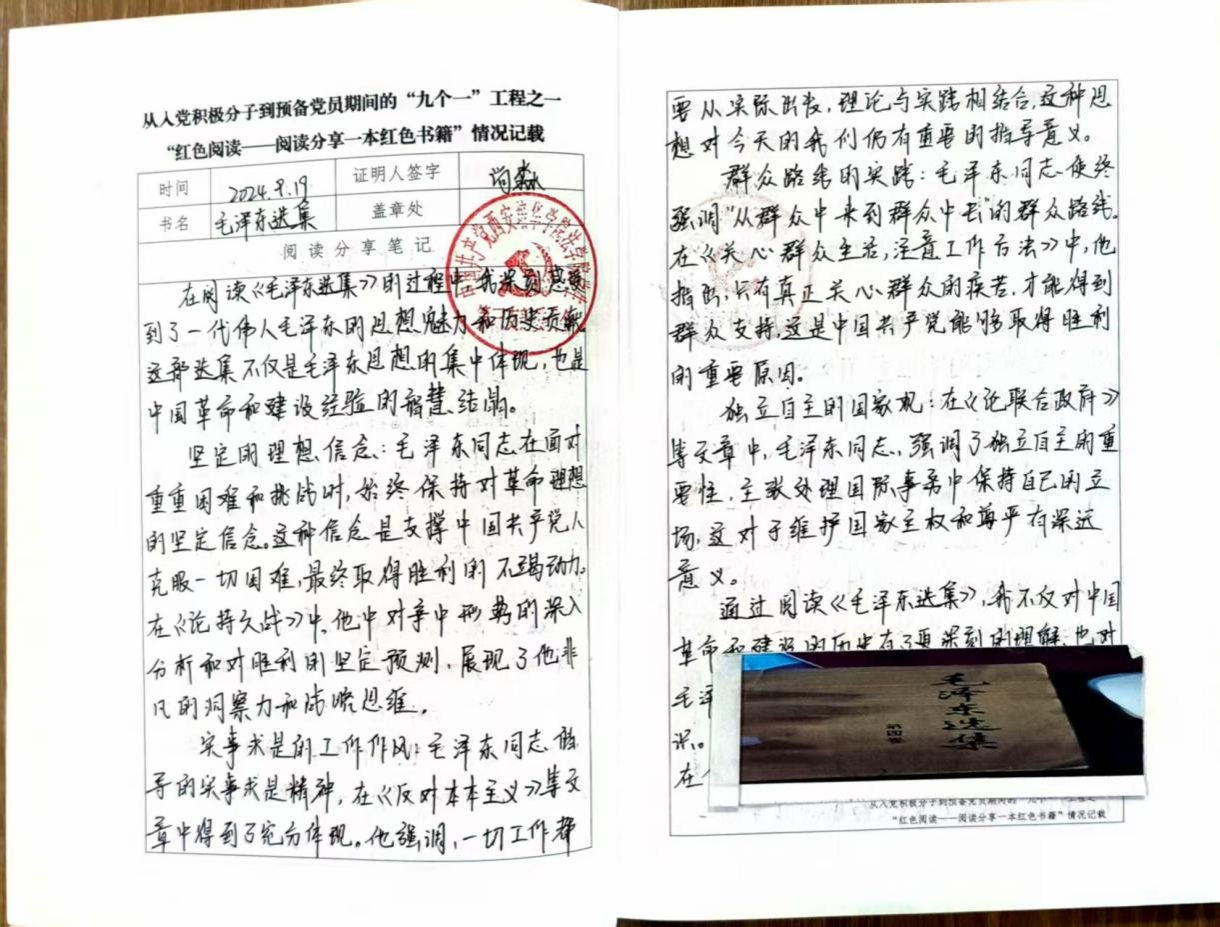 从入党积极分子到预备党员期间的“九个一”工程之一
“红色阅读——阅读分享一本红色书籍”情况记载
时间 2024.9.19 证明人签字
书名 毛泽东选集 盖章处
阅读分享笔记
在阅读《毛泽东选集》的过程中，我深刻感受
到了一代伟人毛泽东的思想魅力和历史贡献
这部选集不仅是毛泽东思想的集中体现，也是
中国革命和建设经验的智慧结晶。
坚定的理想信念：毛泽东同志在面对
重重困难和挑战时，始终保持对革命理想
的坚定信念。这种信念是支撑中国共产党人
克服一切困难，最终取得胜利的不竭动力。
在《论持久战》中，他中对争中形势的深入
分析和对胜利的坚定预测，展现了他非
凡的洞察力和战略思维。
实事求是的工作作风：毛泽东同志倡
导的实事求是精神，在《反对本本主义》等文
章中得到了充分体现。他强调，一切工作都
要从实际出发，理论与实践相结合，这种思
想对今天的我们仍有重要的指导意义。
群众路线的实践：毛泽东同志使终
强调“从群众中来到群众中去”的群众路线。
在《关心群众生活，注意工作方法》中，他
指出，只有真正关心群众的疾苦，才能得到
群众支持，这是中国共产党能够取得胜利
的重要原因。
独立自主的国家观：在《论联合政府》
等文章中，毛泽东同志，强调了独立自主的重
要性，主张处理国际事务中保持自己的立
场，这对于维护国家主权和尊严有深远
意义。
通过阅读《毛泽东选集》，我不仅对中国
革命和建设的历史有了更深刻的理解，也对
毛泽
识。
在
毛泽东选集
第四卷
从入党积极分子到预备党员期间的“九个一”工程之一
“红色阅读——阅读分享一本红色书籍”情况记载